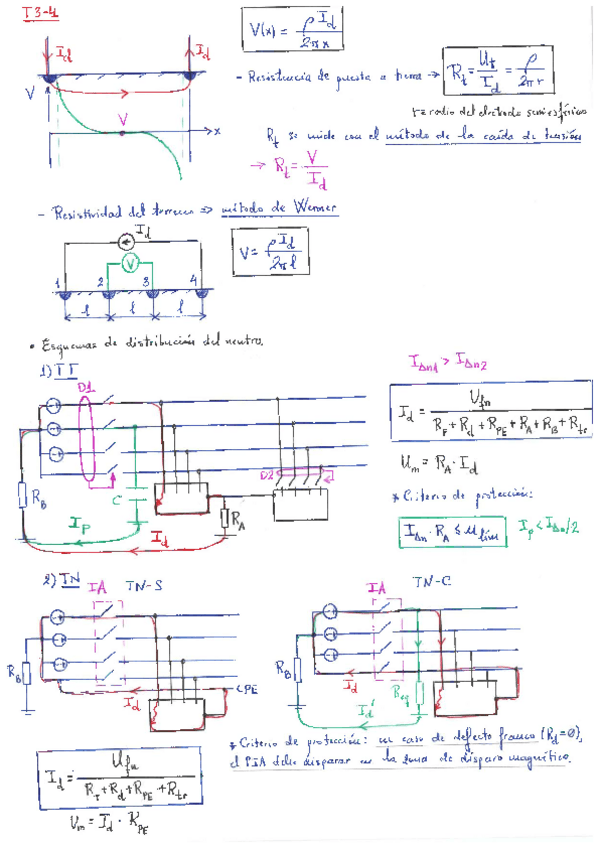 T3-4
V(x) = ρ I_d / 2πx
I_d
I_d
V
V
x
- Resistencia de puesta a tierra → R_t = U_t / I_d = ρ / 2πr
r = radio del electrodo semiesférico
R_t se mide con el método de la caída de tensión
→ R_t = V / I_d
- Resistividad del terreno ⇒ método de Wenner
I_d
V
1 2 3 4
l l l
V = ρ I_d / 2πl
• Esquemas de distribución del neutro.
1) TT
D1
I_Δn1 > I_Δn2
I_d = U_fn / R_F + R_d + R_PE + R_A + R_B + R_tr
U_m = R_A · I_d
D2
R_B
C
R_A
I_p
I_d
* Criterio de protección:
I_Δn · R_A ≤ U_lim
I_p < I_Δn/2
2) TN
IA
TN-S
R_B
I_d
CPE
IA
TN-C
R_B
I_d
R_eq
I_d'
I_d = U_fn / R_F + R_d + R_PE + R_tr
U_m = I_d · R_PE
* Criterio de protección: en caso de defecto franco (R_d = 0),
el PIA debe disparar en la zona de disparo magnético.